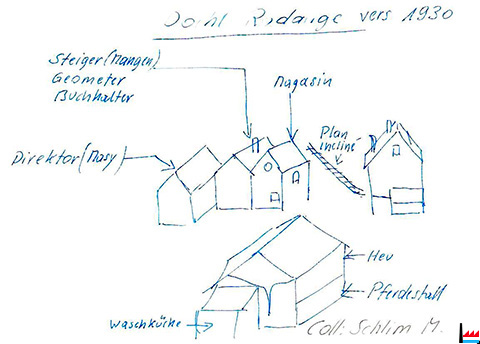 Doihl Rodange vers 1930
Steiger (Mangen)
Geometer
Buchhalter
Magasin
Plan
incliné
Direktor (Masy)
Heu
Pferdestall
Waschküche
Coll: Schlim M.